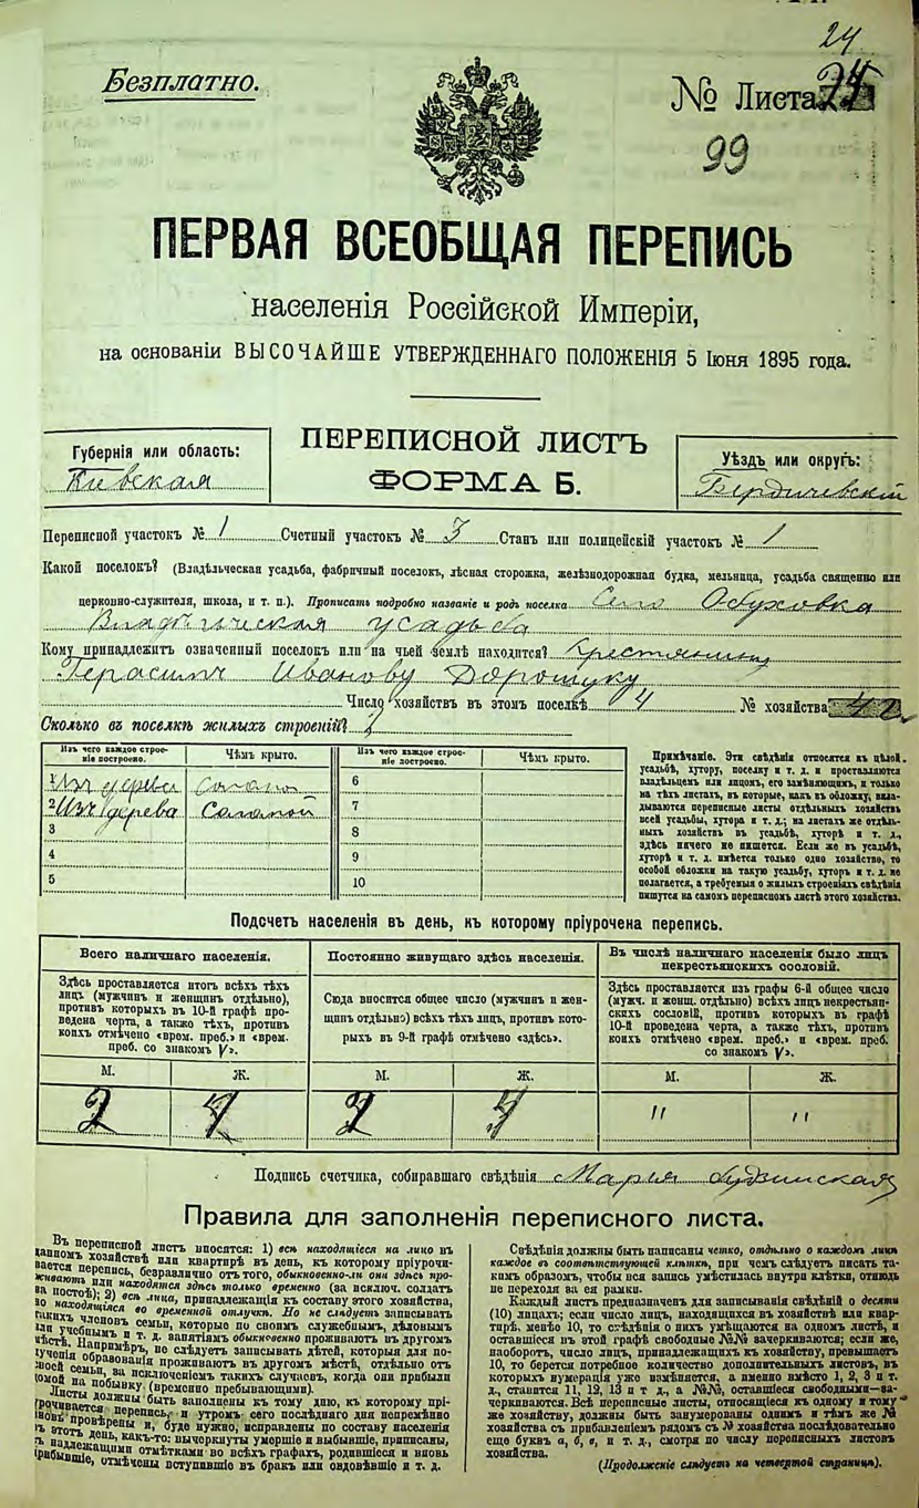 24
Безплатно.
№ Листа 24
99
ПЕРВАЯ ВСЕОБЩАЯ ПЕРЕПИСЬ
населенія Россійской Имперіи,
на основаніи ВЫСОЧАЙШЕ УТВЕРЖДЕННАГО ПОЛОЖЕНІЯ 5 Іюня 1895 года.
Губернія или область:
Кіевская
ПЕРЕПИСНОЙ ЛИСТЪ
ФОРМА Б.
Уѣздъ или округъ:
Бердичевскій
Переписной участокъ № 1 Счетный участокъ № 3 Станъ или полицейскій участокъ № 1
Какой поселокъ? (Владѣльческая усадьба, фабричный поселокъ, лѣсная сторожка, желѣзнодорожная будка, мельница, усадьба священно или
церковно-служителя, школа, и т. п.). Прописать подробно названіе и родъ поселка Село Обуховка
Владѣльческая усадьба
Кому принадлежитъ означенный поселокъ или на чьей землѣ находится? Крестянину
Герасиму Иванову Дорошуку
Число хозяйствъ въ этомъ поселкѣ 4 № хозяйства
Сколько въ поселкѣ жилыхъ строеній?
Изъ чего каждое строеніе построено.
Чѣмъ крыто.
Изъ чего каждое строеніе построено.
Чѣмъ крыто.
1 Изъ дерева
6
2 Изъ дерева Соломой
7
3
8
4
9
5
10
Примѣчаніе. Эти свѣдѣнія относятся къ цѣлой
усадьбѣ, хутору, поселку и т. д. и проставляются
владѣльцемъ или лицомъ, его замѣняющимъ, и только
на тѣхъ листахъ, въ которые, какъ въ обложку, вкла-
дываются переписные листы отдѣльныхъ хозяйствъ
всей усадьбы, хутора и т. д.; на листахъ же отдѣль-
ныхъ хозяйствъ въ усадьбѣ, хуторѣ и т. д.,
здѣсь ничего не пишется. Если же въ усадьбѣ,
хуторѣ и т. д. имѣется только одно хозяйство, то
особой обложки на такую усадьбу, хуторъ и т. д. не
полагается, а требуемыя о жилыхъ строеніяхъ свѣдѣнія
пишутся на самомъ переписномъ листѣ этого хозяйства.
Подсчетъ населенія въ день, къ которому пріурочена перепись.
Всего наличнаго населенія.
Здѣсь проставляется итогъ всѣхъ тѣхъ
лицъ (мужчинъ и женщинъ отдѣльно),
противъ которыхъ въ 10-й графѣ про-
ведена черта, а также тѣхъ, противъ
коихъ отмѣчено «врем. преб.» и «врем.
преб. со знакомъ V».
Постоянно живущаго здѣсь населенія.
Сюда вносится общее число (мужчинъ и жен-
щинъ отдѣльно) всѣхъ тѣхъ лицъ, противъ кото-
рыхъ въ 9-й графѣ отмѣчено «здѣсь».
Въ числѣ наличнаго населенія было лицъ
некрестьянскихъ сословій.
Здѣсь проставляется изъ графы 6-й общее число
(мужч. и женщ. отдѣльно) всѣхъ лицъ некрестьян-
скихъ сословій, противъ которыхъ въ графѣ
10-й проведена черта, а также тѣхъ, противъ
коихъ отмѣчено «врем. преб.» и «врем. преб.
со знакомъ V».
М. Ж. М. Ж. М. Ж.
2 " "
Подпись счетчика, собиравшаго свѣдѣнія Мария
Правила для заполненія переписного листа.
Въ переписной листъ вносятся: 1) всѣ находящіеся на лицо въ
данномъ хозяйствѣ или квартирѣ въ день, къ которому пріурочи-
вается перепись, безразлично отъ того, обыкновенно-ли они здѣсь про-
живаютъ или находятся здѣсь только временно (за исключ. солдатъ
на постоѣ); 2) всѣ лица, принадлежащія къ составу этого хозяйства,
но находящіяся во временной отлучкѣ. Но не слѣдуетъ записывать
такихъ членовъ семьи, которые по своимъ служебнымъ, дѣловымъ
или учебнымъ и т. д. занятіямъ обыкновенно проживаютъ въ другомъ
мѣстѣ. Напримѣръ, не слѣдуетъ записывать дѣтей, которыя для по-
лученія образованія проживаютъ въ другомъ мѣстѣ, отдѣльно отъ
своей семьи, за исключеніемъ такихъ случаевъ, когда они прибыли
домой на побывку (временно пребывающими).
Листы должны быть заполнены къ тому дню, къ которому прі-
урочивается перепись, и утромъ сего послѣдняго дня непремѣнно
вновь провѣрены и, буде нужно, исправлены по составу населенія
въ этотъ день, какъ-то: вычеркнуты умершіе и выбывшіе, приписаны,
съ надлежащими отмѣтками во всѣхъ графахъ, родившіеся и вновь
прибывшіе, отмѣчены вступившіе въ бракъ или овдовѣвшіе и т. д.
Свѣдѣнія должны быть написаны четко, отдѣльно о каждомъ лицѣ
каждое въ соотвѣтствующей клѣткѣ, при чемъ слѣдуетъ писать та-
кимъ образомъ, чтобы вся запись умѣстилась внутри клѣтки, отнюдь
не переходя за ея рамки.
Каждый листъ предназначенъ для записыванія свѣдѣній о десяти
(10) лицахъ; если число лицъ, находящихся въ хозяйствѣ или квар-
тирѣ, менѣе 10, то свѣдѣнія о нихъ умѣщаются на одномъ листѣ, и
оставшіеся въ этой графѣ свободные №№ зачеркиваются; если же,
наоборотъ, число лицъ, принадлежащихъ къ хозяйству, превышаетъ
10, то берется потребное количество дополнительныхъ листовъ, въ
которыхъ нумерація уже измѣняется, а именно вмѣсто 1, 2, 3 и т.
д., ставится 11, 12, 13 и т. д., а №№, оставшіеся свободными—за-
черкиваются. Всѣ переписные листы, относящіеся къ одному и тому
же хозяйству, должны быть занумерованы однимъ и тѣмъ же №
хозяйства съ прибавленіемъ рядомъ съ № хозяйства послѣдовательно
еще буквъ а, б, в, и т. д., смотря по числу переписныхъ листовъ
хозяйства.
(Продолженіе слѣдуетъ на четвертой страницѣ).